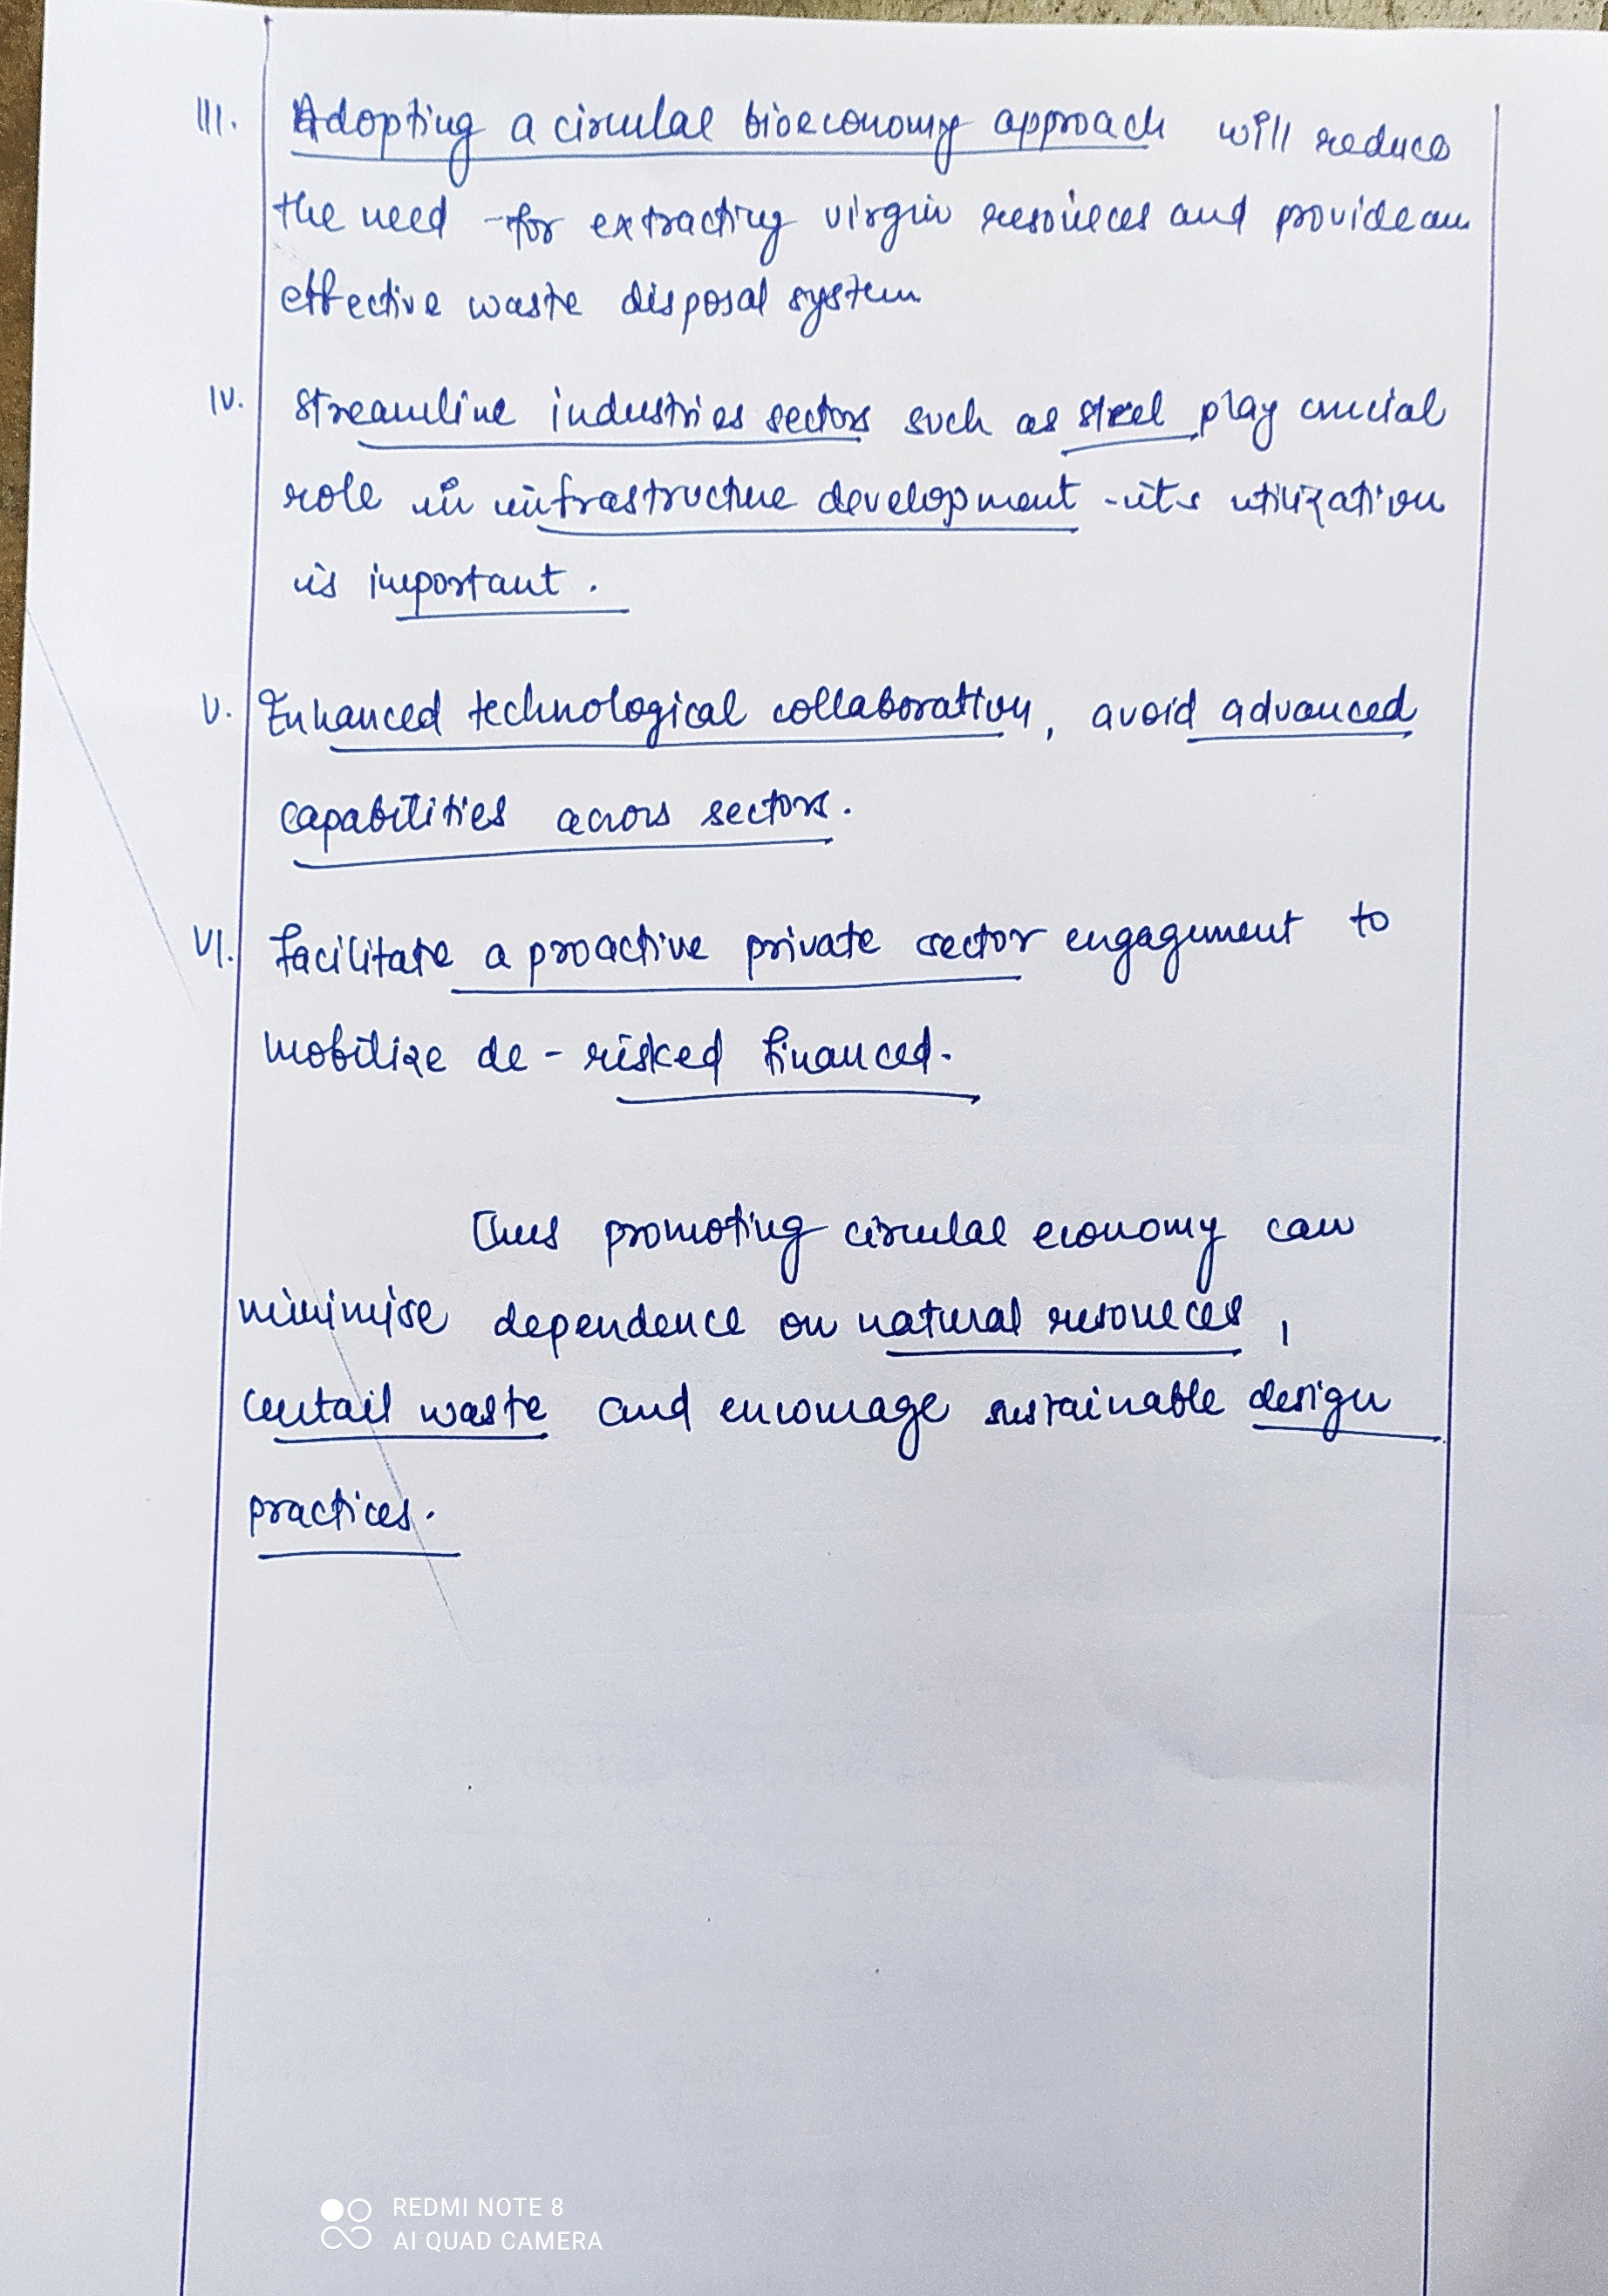 III. Adopting a circular bioeconomy approach will reduce
the need for extracting virgin resources and provide an
effective waste disposal system
IV. Streamline industries sectors such as steel play crucial
role in infrastructure development - its utilization
is important.
V. Enhanced technological collaboration, avoid advanced
capabilities across sectors.
VI. Facilitate a proactive private sector engagement to
mobilize de-risked financed.
Thus promoting circular economy can
minimise dependence on natural resources,
curtail waste and encourage sustainable design
practices.
REDMI NOTE 8
AI QUAD CAMERA